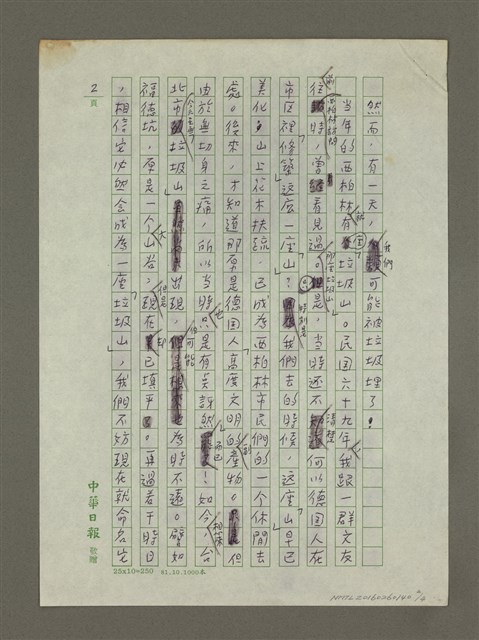 然而，有一天，我們可能被垃圾埋了！
當年的西柏林有一座垃圾山。民國六十九年，我跟一群文友
前往西柏林訪問時，曾看見過。但是，當時還不清楚何以德国人在
市区裡修築這麽一座「山」？我們去的時候，這座「山」早已
美化，山上花木扶疏，已成為西柏林市民們的一個休閒去
處。後來，才知道那原是德国人高度文明的副產物。但
由於無切身之痛，所以當時也只是有些訝然而已！如今，台
北市垃圾山出現，可能為時不遠。譬如
福德坑，原是一個大山谷，但是現在却已填平。再過若干時日
，相信它必然會成為一座「垃圾山」，我們不妨現在就命名它
2
頁
中華日報
敬贈
25x10=250 81.10.3000本